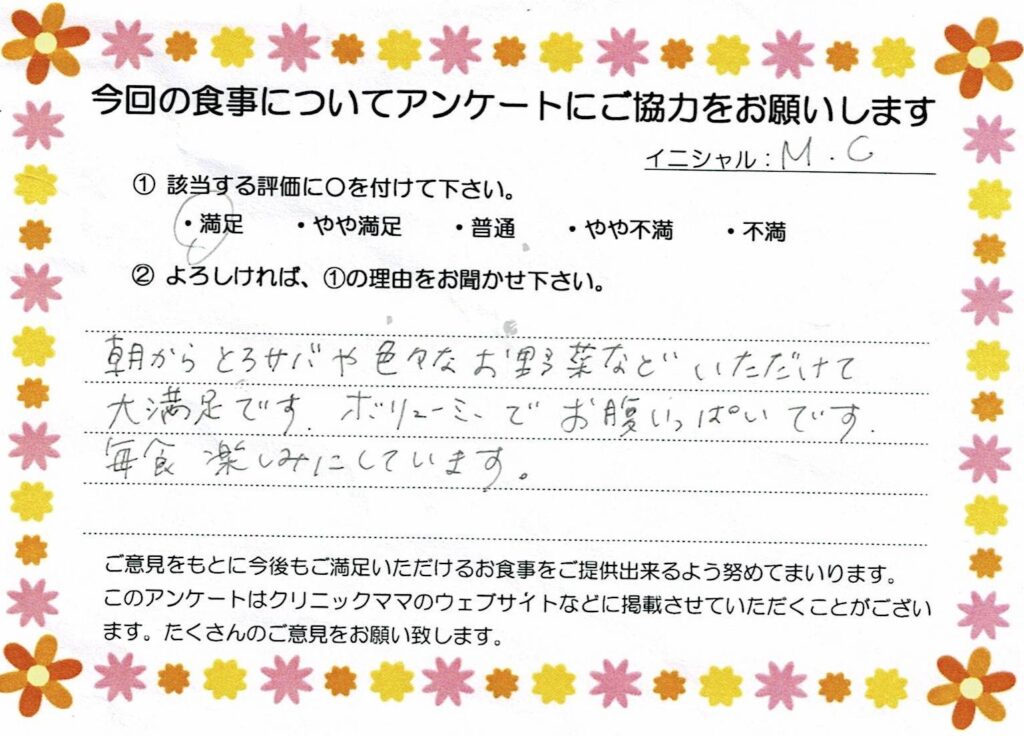 今回の食事についてアンケートにご協力をお願いします
イニシャル：M.C
① 該当する評価に〇を付けて下さい。
・満足 ・やや満足 ・普通 ・やや不満 ・不満
② よろしければ、①の理由をお聞かせ下さい。
朝からとろサバや色々なお野菜などいただけて
大満足です. ボリューミーでお腹いっぱいです.
毎食楽しみにしています。
ご意見をもとに今後もご満足いただけるお食事をご提供出来るよう努めてまいります。
このアンケートはクリニックママのウェブサイトなどに掲載させていただくことがござい
ます。たくさんのご意見をお願い致します。